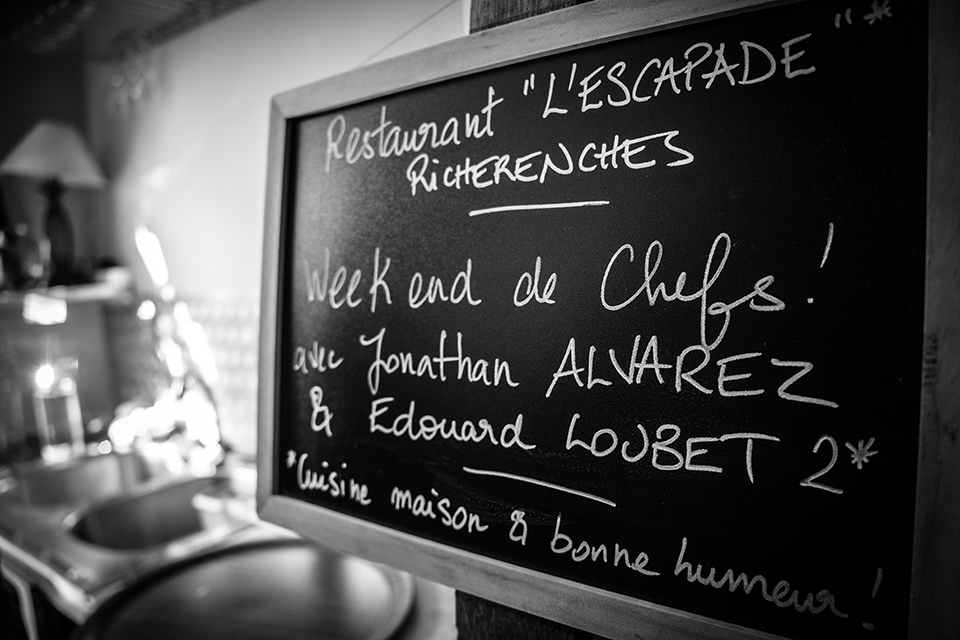 Restaurant "L'ESCAPADE" *
RICHERENCHES
Week end de Chefs !
avec Jonathan ALVAREZ
& Edouard LOUBET 2*
*Cuisine maison & bonne humeur !